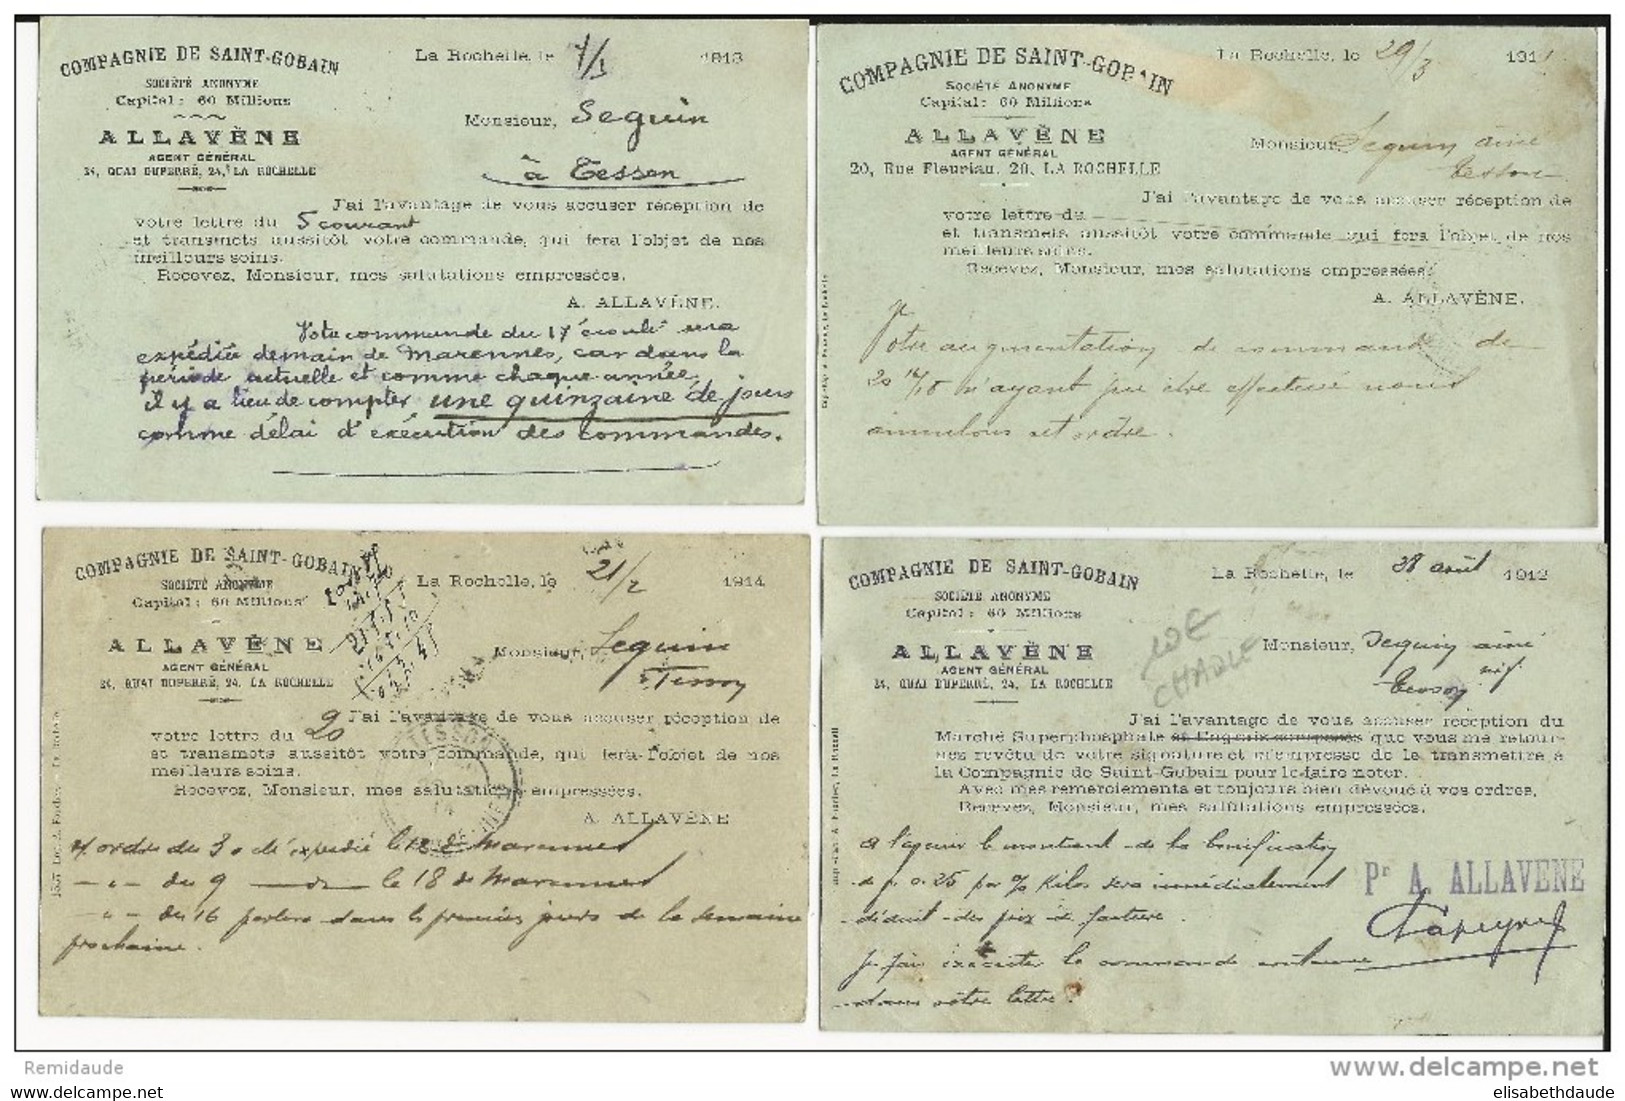 COMPAGNIE DE SAINT-GOBAIN
SOCIÉTÉ ANONYME
Capital : 60 Millions
ALLAVÈNE
AGENT GÉNÉRAL
24, QUAI DUPERRÉ, 24, LA ROCHELLE
La Rochelle, le 7/3 1913
Monsieur, Seguin
à Tesson
J'ai l'avantage de vous accuser réception de
votre lettre du 5 courant
et transmets aussitôt votre commande, qui fera l'objet de nos
meilleurs soins.
Recevez, Monsieur, mes salutations empressées.
A. ALLAVÈNE.
Votre commande du 17 écoulé sera
expédiée demain de Marennes, car dans la
période actuelle et comme chaque année
il y a lieu de compter une quinzaine de jours
comme délai d'exécution des commandes.
COMPAGNIE DE SAINT-GOBAIN
SOCIÉTÉ ANONYME
Capital : 60 Millions
ALLAVÈNE
AGENT GÉNÉRAL
20, Rue Fleuriau, 20, LA ROCHELLE
La Rochelle, le 29/3 191
Monsieur, Seguin ainé
Tesson
J'ai l'avantage de vous accuser réception de
votre lettre du
et transmets aussitôt votre commande qui fera l'objet de nos
meilleurs soins.
Recevez, Monsieur, mes salutations empressées.
A. ALLAVÈNE.
Votre augmentation de commande de
20 n'ayant pu être effectuée nous
annulons cet ordre.
COMPAGNIE DE SAINT-GOBAIN
SOCIÉTÉ ANONYME
Capital : 60 Millions
ALLAVÈNE
AGENT GÉNÉRAL
24, QUAI DUPERRÉ, 24, LA ROCHELLE
La Rochelle, le 21/2 1914
Monsieur, Seguin
Tesson
J'ai l'avantage de vous accuser réception de
votre lettre du 20
et transmets aussitôt votre commande, qui fera l'objet de nos
meilleurs soins.
Recevez, Monsieur, mes salutations empressées.
A. ALLAVÈNE
V/ ordre du 30 expédié le 12 de Marennes
— " — du 9 le 18 de Marennes
— " — du 16 partira dans les premiers jours de la semaine
prochaine.
COMPAGNIE DE SAINT-GOBAIN
SOCIÉTÉ ANONYME
Capital : 60 Millions
ALLAVÈNE
AGENT GÉNÉRAL
24, QUAI DUPERRÉ, 24, LA ROCHELLE
La Rochelle, le 28 août 1912
10€
CHAQUE
Monsieur, Seguin ainé
Tesson
J'ai l'avantage de vous accuser réception du
Marché Superphosphate et Engrais composés que vous me retour-
nez revêtu de votre signature et m'empresse de le transmettre à
la Compagnie de Saint-Gobain pour le faire noter.
Avec mes remerciements et toujours bien dévoué à vos ordres,
Recevez, Monsieur, mes salutations empressées.
A l'avenir le montant de la bonification
de 0.25 par % kilos sera immédiatement
déduit des prix de facture.
Je fais exécuter la commande contenue
dans votre lettre.
Pr A. ALLAVENE
Lapeyre
Remidaude
www.delcampe.net
elisabethdaude
elisabethdaude